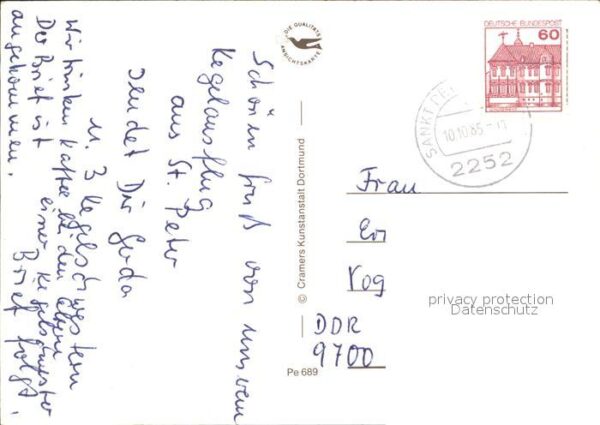 Schönen Gruß von unserem
Kegelausflug
aus St. Peter
sendet Dir Gerda
u. 3 Kegelschwestern
Wir trinken Kaffee bei den
Der Brief ist einer Kegelschwester
angekommen. Brief folgt.
DIE QUALITÄTS
ANSICHTSKARTE
© Cramers Kunstanstalt Dortmund
Pe 689
DEUTSCHE BUNDESPOST
60
SANKT PE
10.10.85
2252
Frau
Vog
DDR
9700
privacy protection
Datenschutz